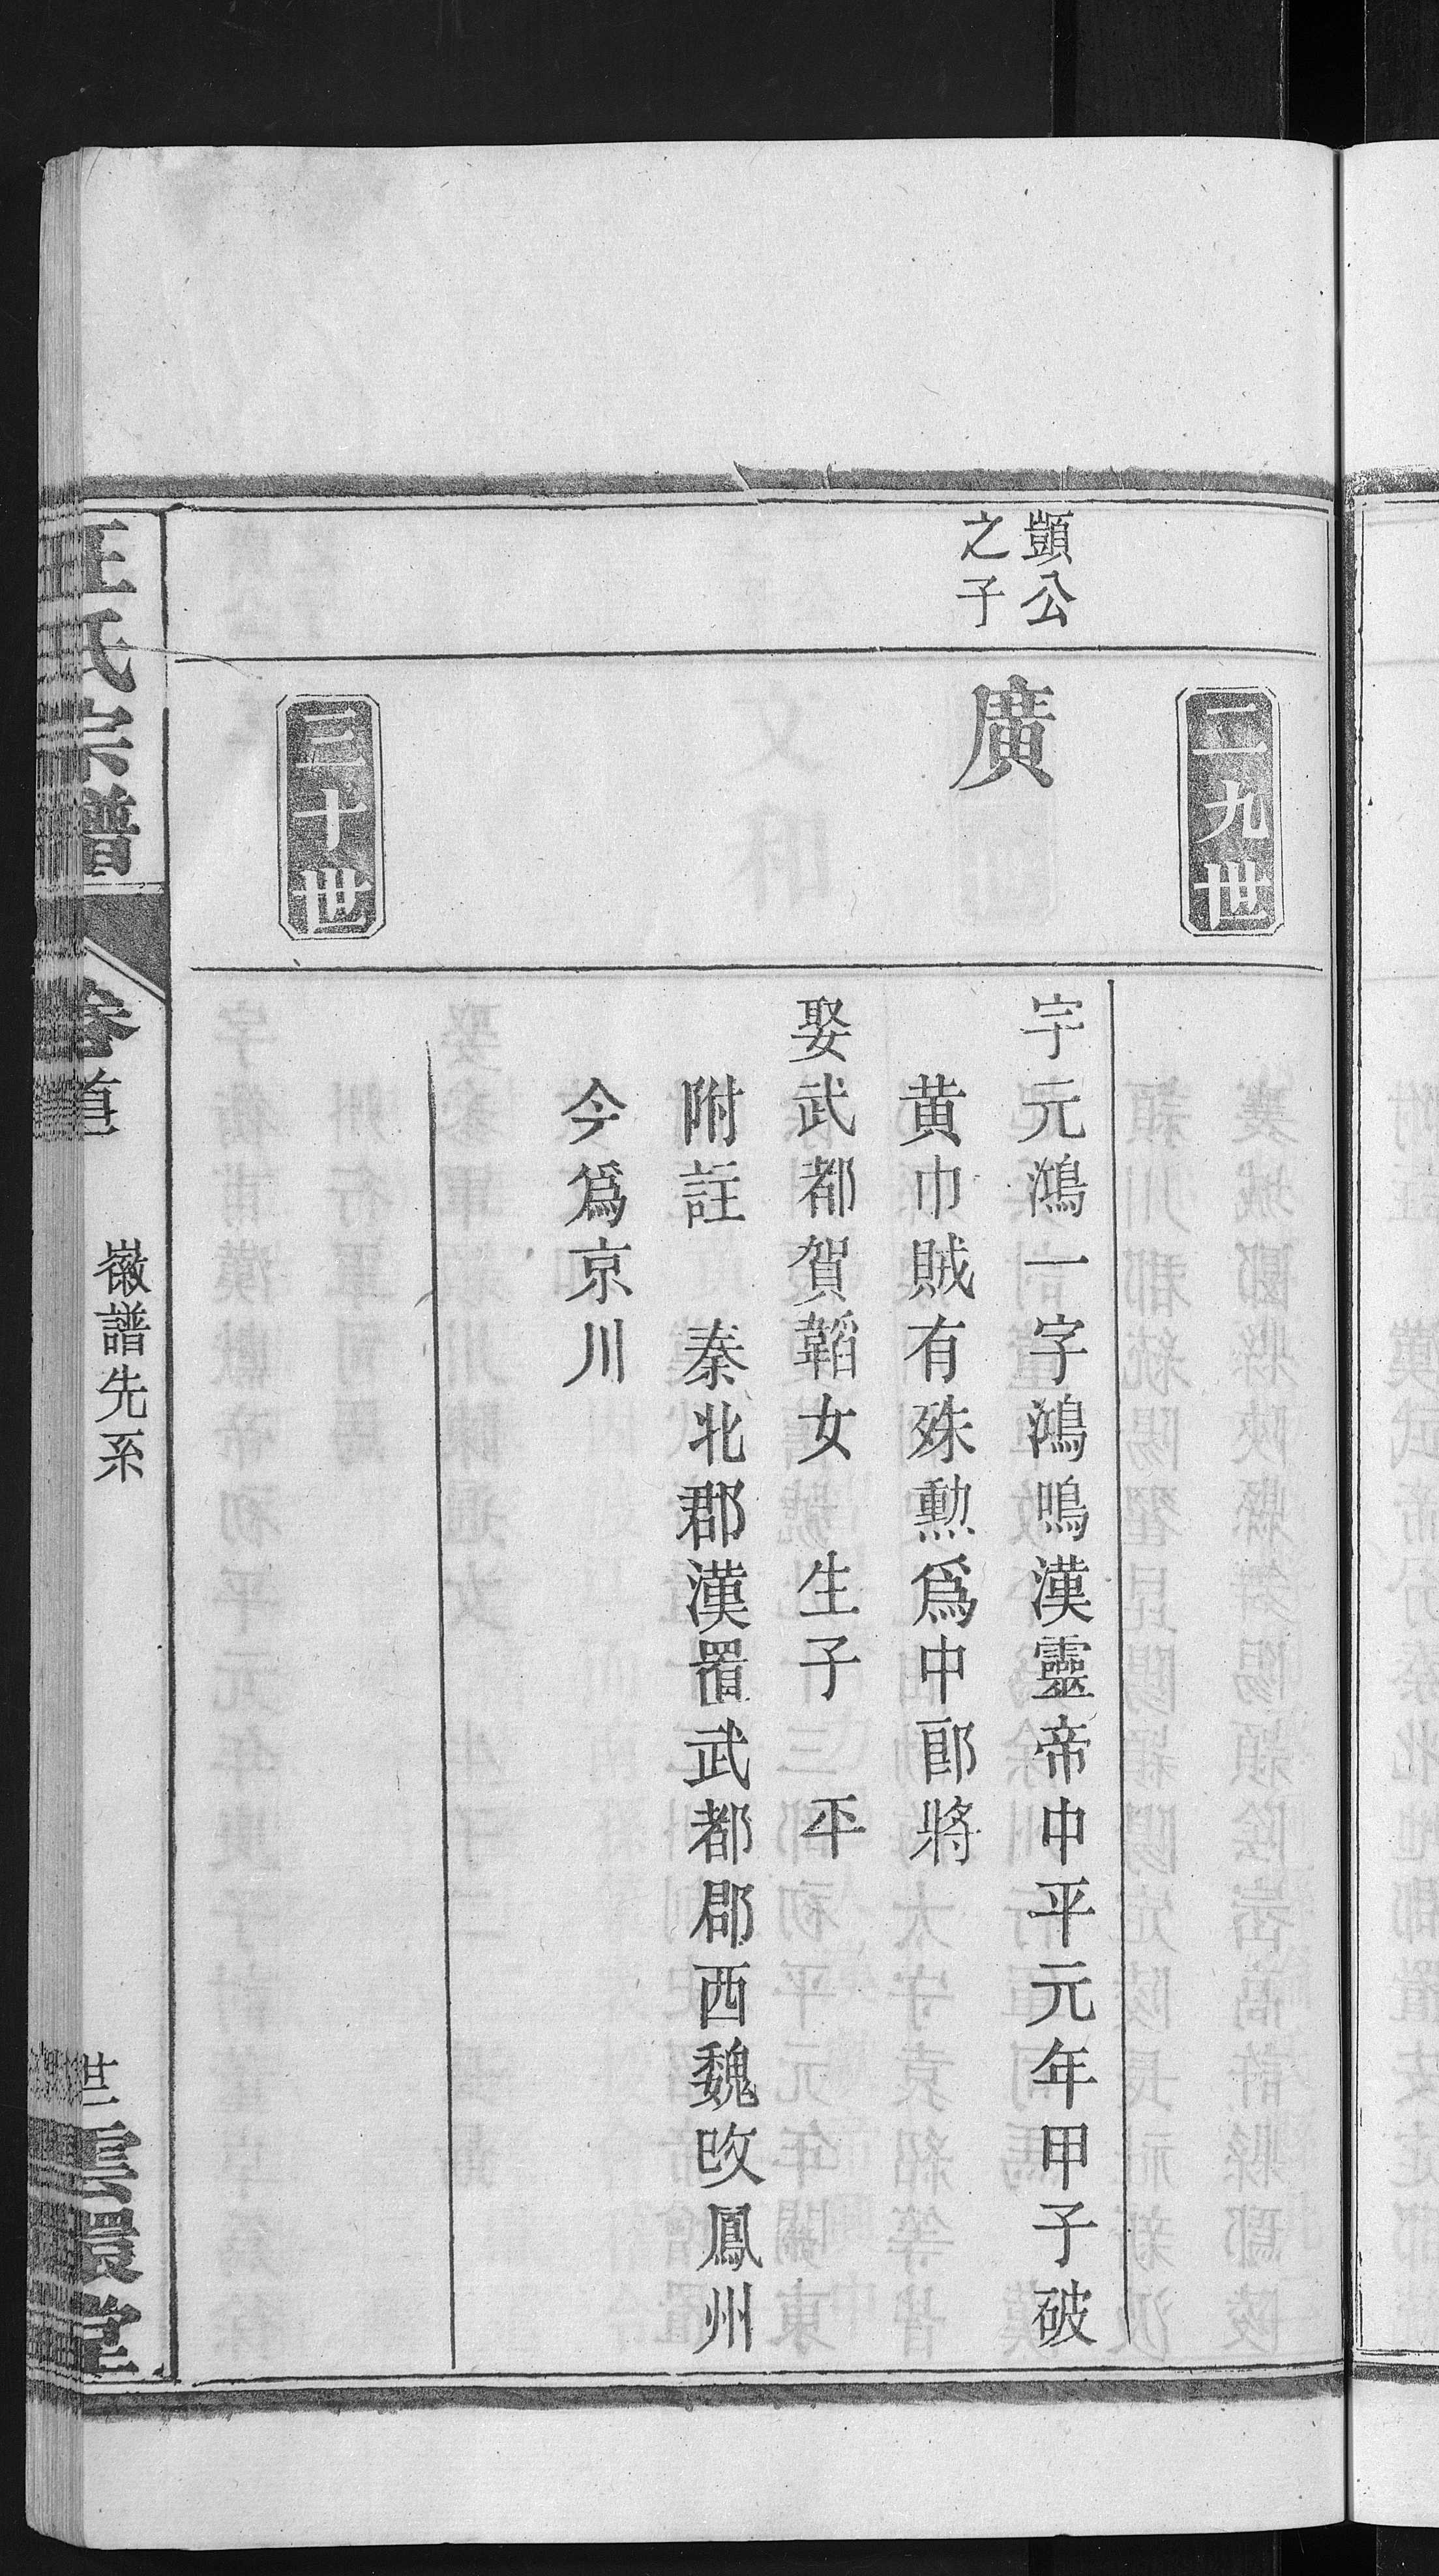 二九世
顗公
之子
廣
字元鴻一字鴻鳴漢靈帝中平元年甲子破
黄巾賊有殊勲爲中郎將
娶武都賀韜女　生子　平
附註　秦北郡漢置武都郡西魏改鳳州
今爲京川
三十世
汪氏宗譜
卷首
徽譜先系
雲環堂